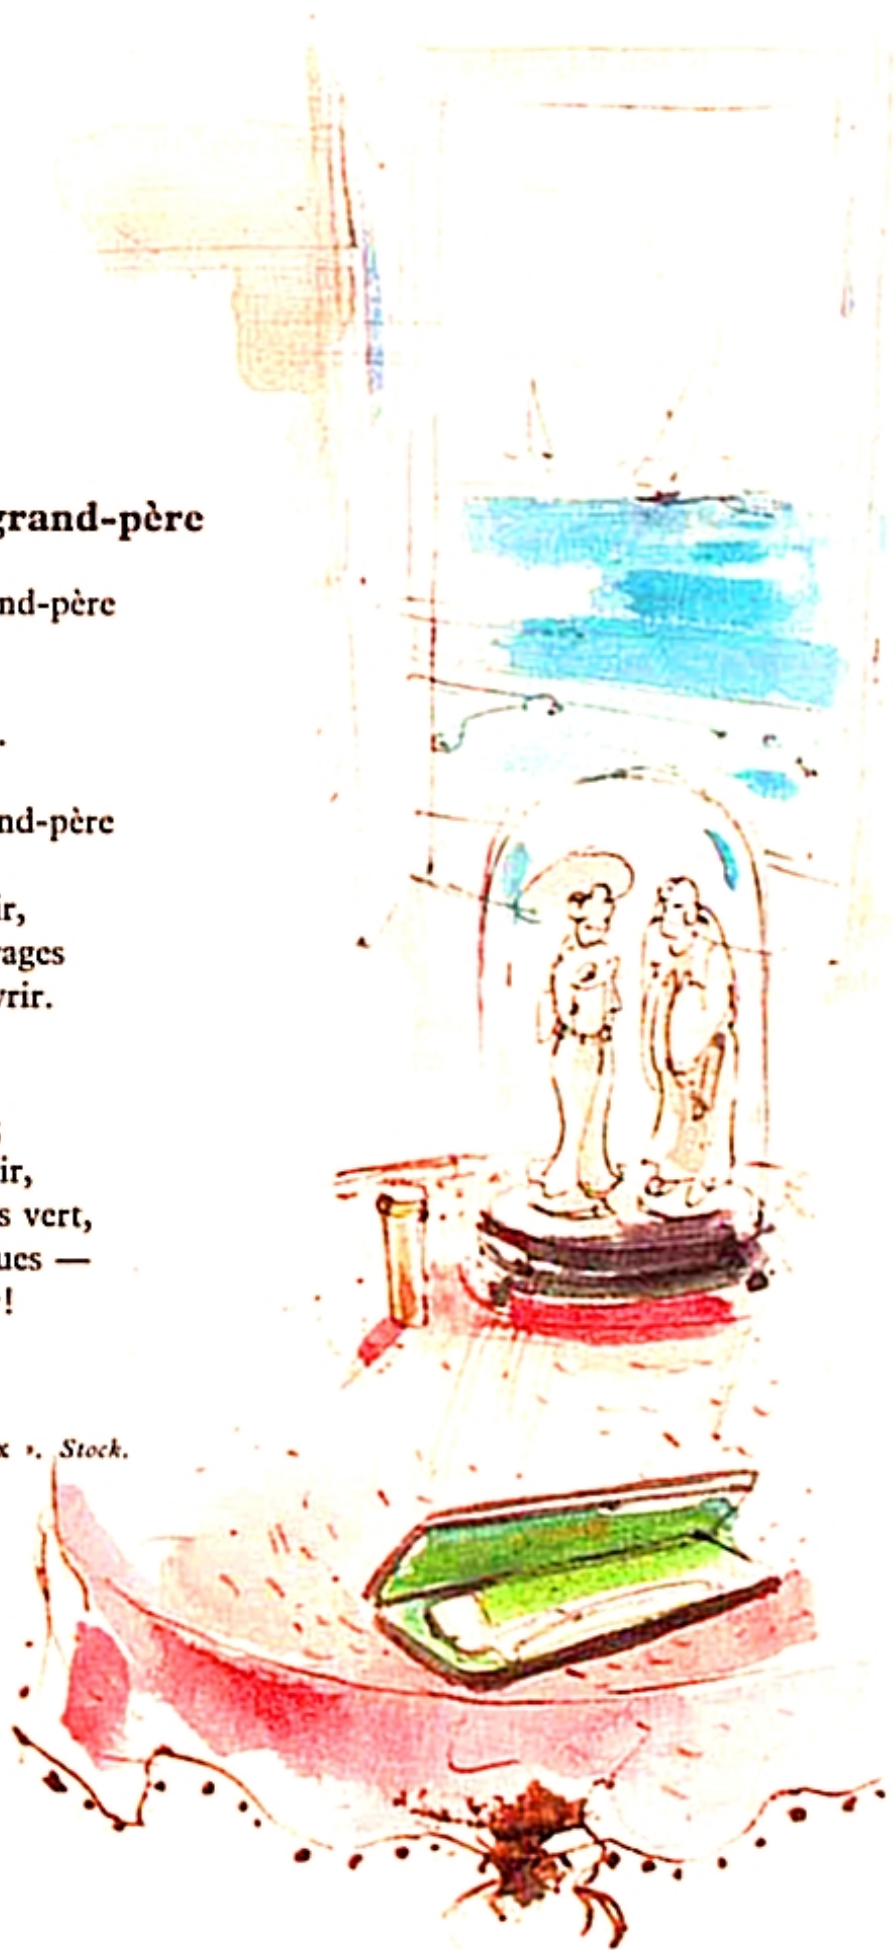 grand-père
nd-père
.
nd-père
ir,
rages
vrir.
ir,
s vert,
ues —
!
x ». Stock.